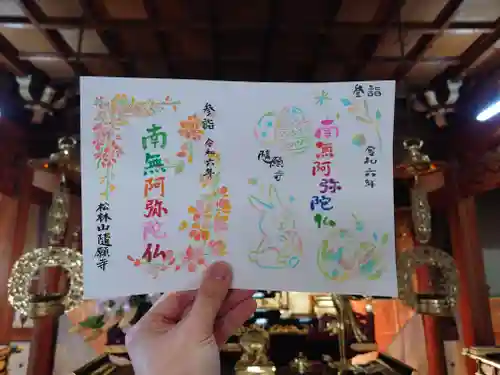 参詣
南無阿弥陀仏
令和六年
隨願寺
参詣 令和六年
南無阿弥陀仏
松林山 隨願寺